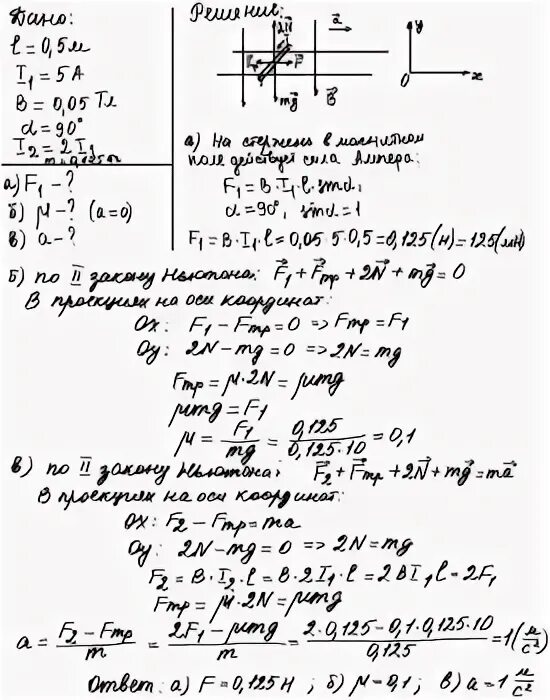 Дано:
l = 0,5 м
I₁ = 5 А
B = 0,05 Тл
α = 90°
I₂ = 2 I₁
m = 0,125 кг
а) F₁ - ?
б) μ - ? (a = 0)
в) a - ?
Решение:
2N⃗
I
a⃗
F⃗
mg⃗
B⃗
y
0
x
а) На стержень в магнитном
поле действует сила Ампера:
F₁ = B · I₁ · l · sinα,
α = 90°, sinα = 1
F₁ = B · I₁ · l = 0,05 · 5 · 0,5 = 0,125 (Н) = 125 (мН)
б) по II закону Ньютона: F⃗₁ + F⃗тр + 2N⃗ + mg⃗ = 0
В проекциях на оси координат:
Ox: F₁ - Fтр = 0 => Fтр = F₁
Oy: 2N - mg = 0 => 2N = mg
Fтр = μ · 2N = μmg
μmg = F₁
μ = F₁/mg = 0,125/0,125·10 = 0,1
в) по II закону Ньютона: F⃗₂ + F⃗тр + 2N⃗ + mg⃗ = ma⃗
В проекциях на оси координат:
Ox: F₂ - Fтр = ma
Oy: 2N - mg = 0 => 2N = mg
F₂ = B · I₂ · l = B · 2I₁ · l = 2BI₁l = 2F₁
Fтр = μ · 2N = μmg
a = F₂ - Fтр/m = 2F₁ - μmg/m = 2·0,125 - 0,1·0,125·10/0,125 = 1 (м/с²)
Ответ: а) F = 0,125 Н ; б) μ = 0,1 ; в) a = 1 м/с²